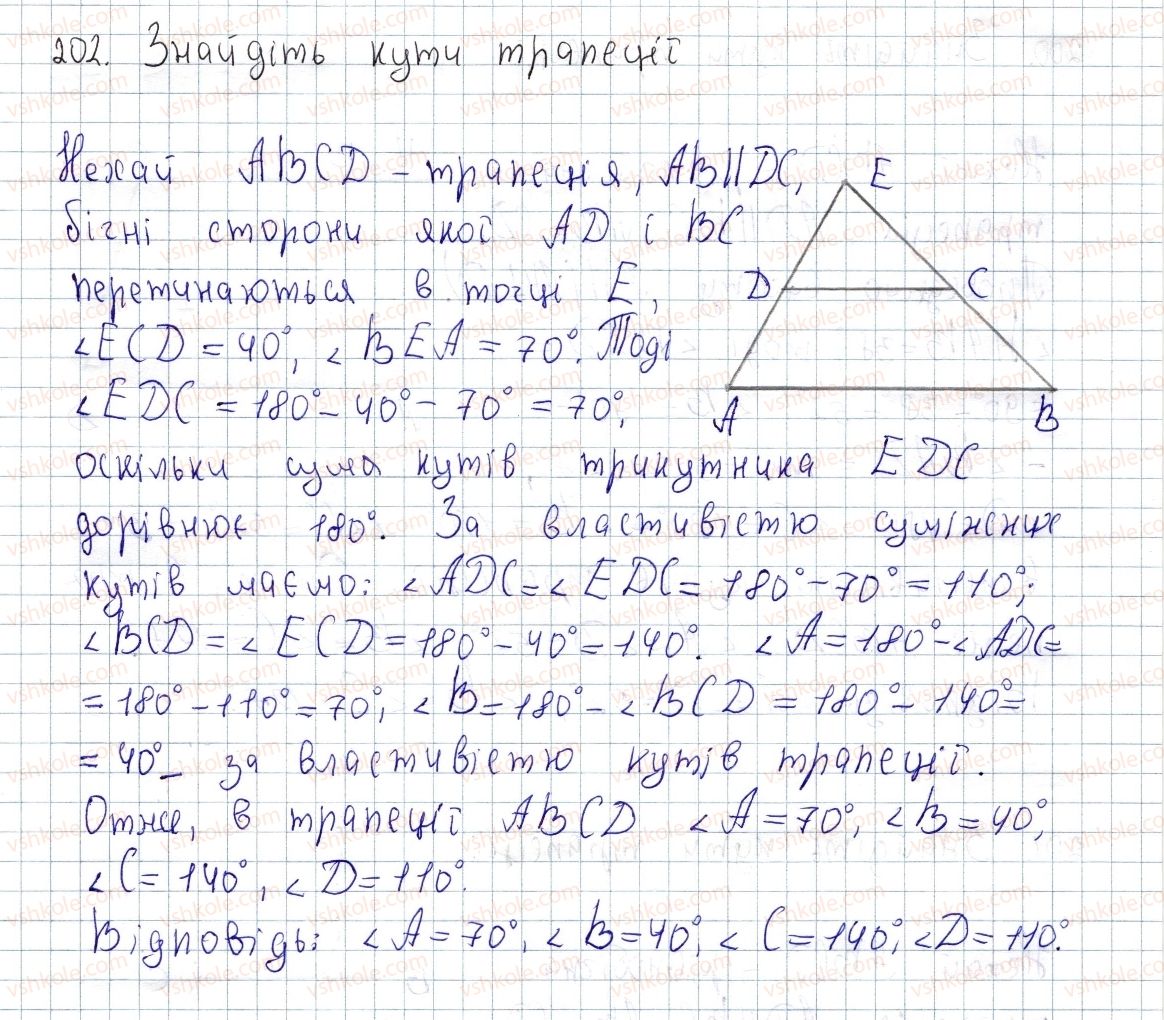 202. Знайдіть кути трапеції
Нехай ABCD – трапеція, AB||DC,
бічні сторони якої AD і BC
перетинаються в точці E,
∠ECD = 40°, ∠BEA = 70°. Тоді
∠EDC = 180° – 40° – 70° = 70°,
оскільки сума кутів трикутника EDC
дорівнює 180°. За властивістю суміжних
кутів маємо: ∠ADC = ∠EDC = 180° – 70° = 110°;
∠BCD = ∠ECD = 180° – 40° = 140°. ∠A = 180° – ∠ADC =
= 180° – 110° = 70°, ∠B = 180° – ∠BCD = 180° – 140° =
= 40° – за властивістю кутів трапеції.
Отже, в трапеції ABCD ∠A = 70°, ∠B = 40°,
∠C = 140°, ∠D = 110°.
Відповідь: ∠A = 70°, ∠B = 40°, ∠C = 140°, ∠D = 110°.
E
D
C
A
B
vshkole.com